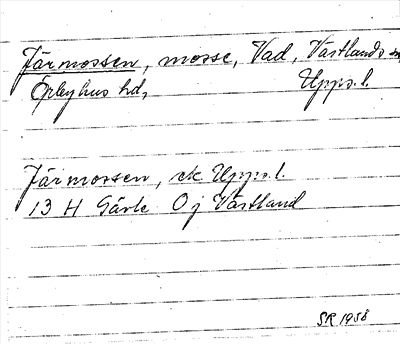 Järmossen, mosse, Vad, Västlands sn,
Örbyhus hd, Upps. l.
Järmossen, ek. Upps. l.
13 H Gävle 0 j Västland
SR 1958